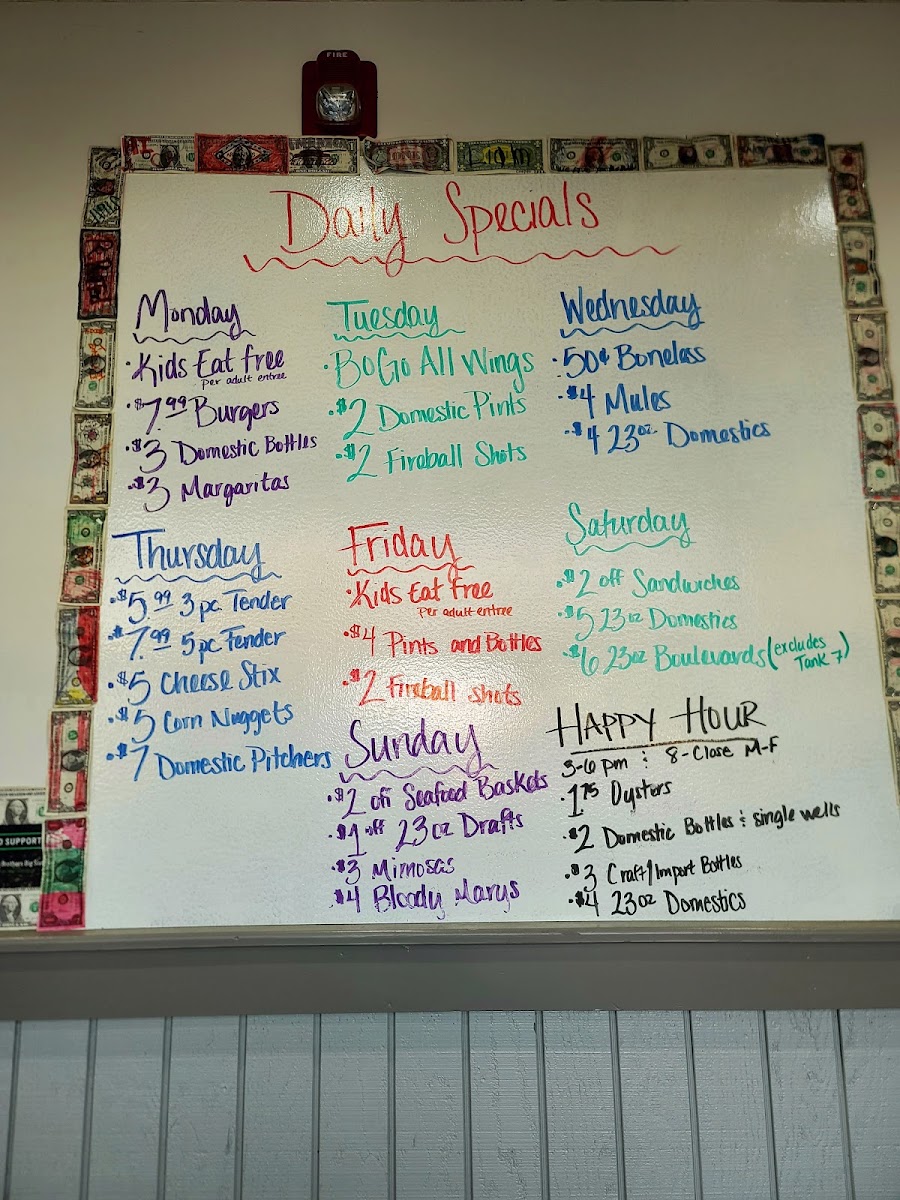 FIRE
Daily Specials
Monday
·Kids Eat free
per adult entree
·$7.99 Burgers
·$3 Domestic Bottles
·$3 Margaritas
Tuesday
·BoGo All Wings
·$2 Domestic Pints
·$2 Fireball Shots
Wednesday
·50¢ Boneless
·$4 Mules
·$4 23oz Domestics
Thursday
·$5.99 3 pc Tender
·$7.99 5 pc Tender
·$5 Cheese Stix
·$5 Corn Nuggets
·$7 Domestic Pitchers
Friday
·Kids Eat Free
per adult entree
·$4 Pints and Bottles
·$2 Fireball shots
Saturday
·$2 off Sandwiches
·$5 23oz Domestics
·$6 23oz Boulevards (excludes
Tank 7)
Sunday
·$2 off Seafood Baskets
·$1 off 23oz Drafts
·$3 Mimosas
·$4 Bloody Marys
HAPPY HOUR
3-6 pm : 8-Close M-F
·1.75 Oysters
·$2 Domestic Bottles & single wells
·$3 Craft/Import Bottles
·$4 23oz Domestics
SUPPORT